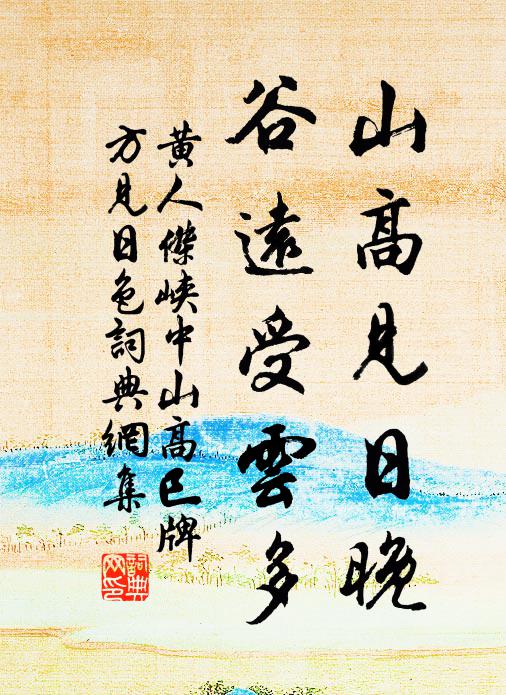 山高見日晚
谷遠受雲多
黃人傑峽中山高巳牌
方見日色詞典網集
詞典
网印